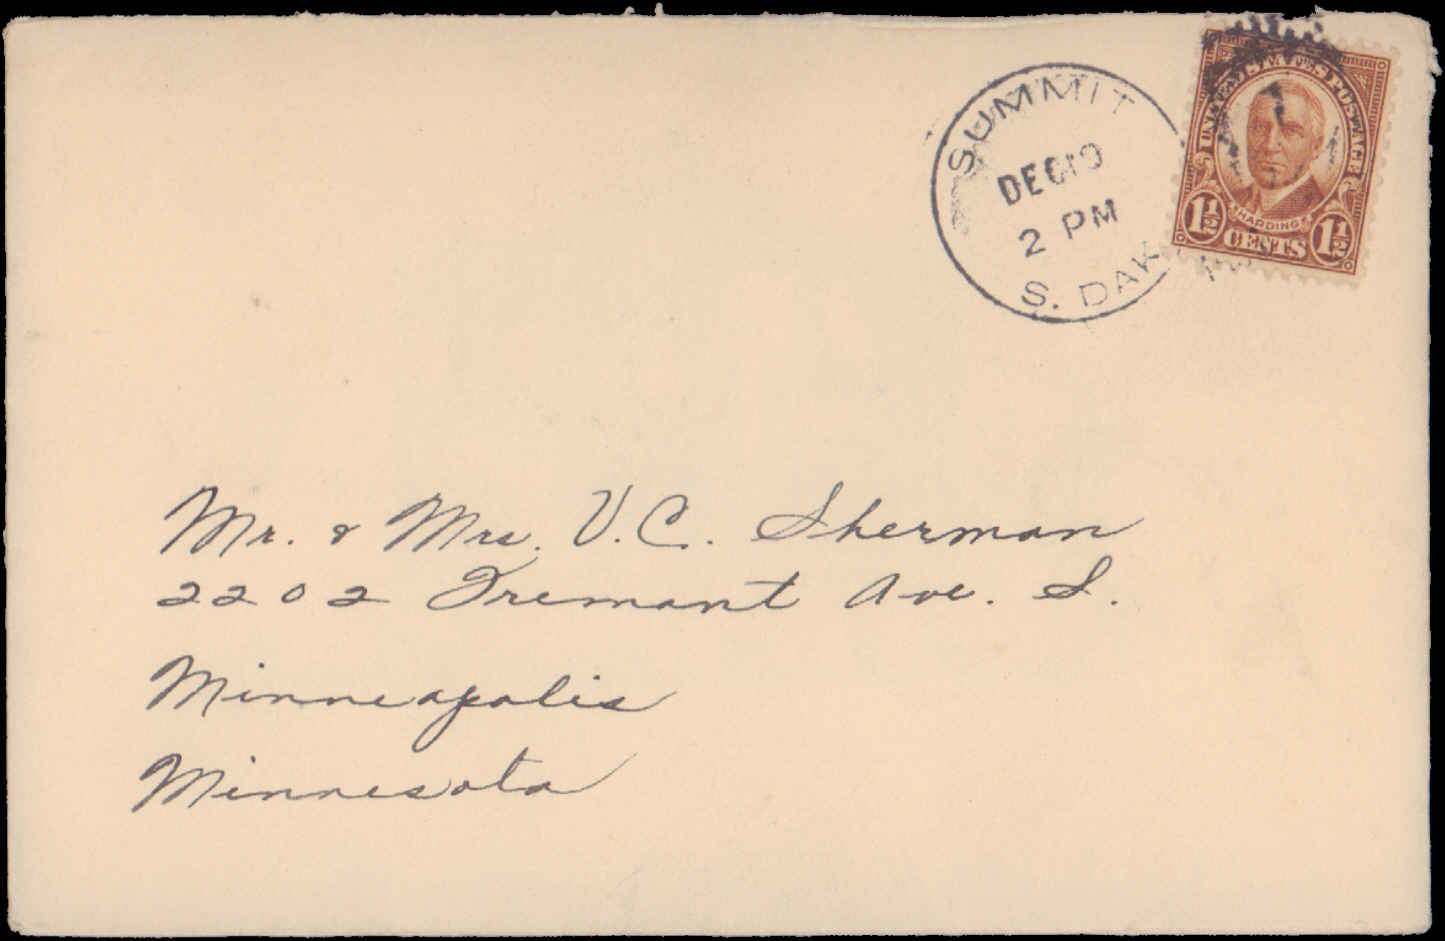 SUMMIT
DEC 19
2 PM
S. DAK
UNITED STATES POSTAGE
HARDING
1½ CENTS 1½
Mr. & Mrs. V. C. Sherman
2202 Fremont Ave. S.
Minneapolis
Minnesota